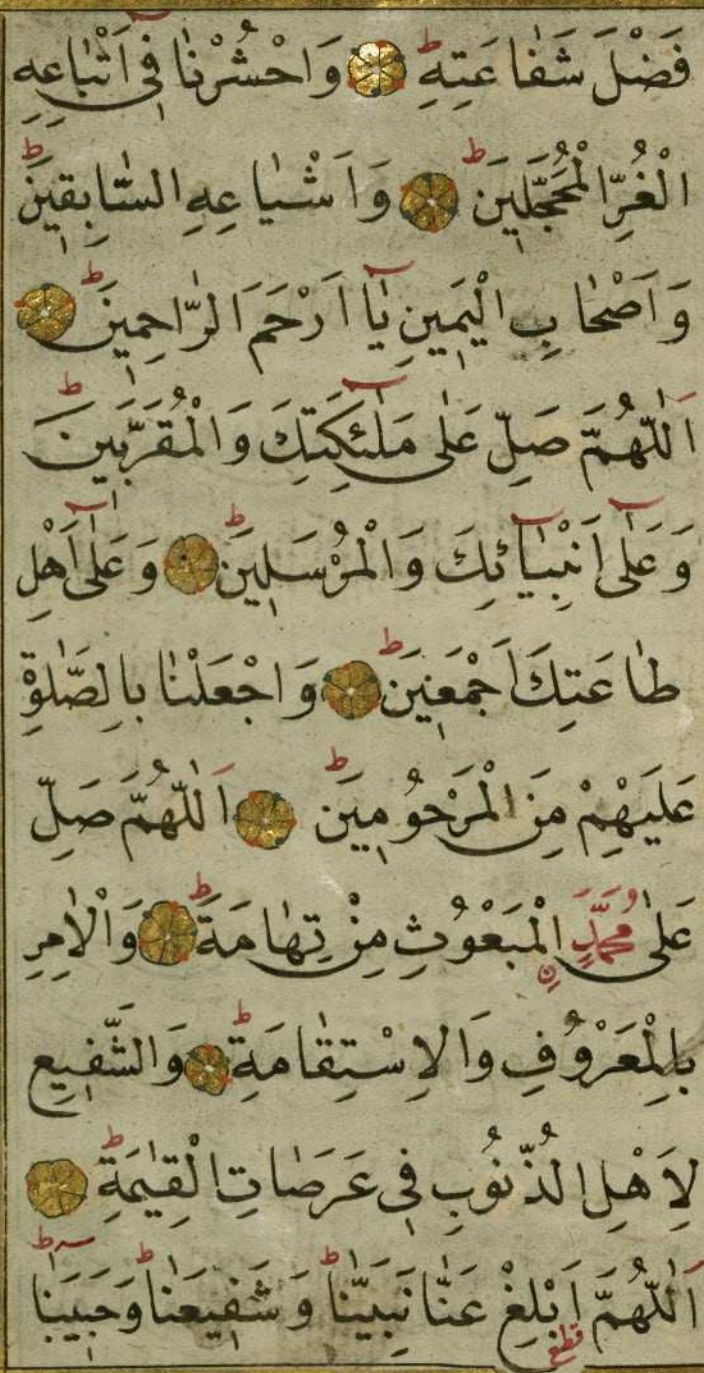 فَضْلَ شَفَاعَتِهِ ط وَاحْشُرْنَا فِي اَتْبَاعِهِ
الْغُرِّ الْمُحَجَّلِينَ ط وَاَشْيَاعِهِ السَّابِقِينَ ط
وَاَصْحَابِ الْيَمِينِ يَآ اَرْحَمَ الرَّاحِمِينَ ط
اَللّٰهُمَّ صَلِّ عَلٰى مَلٰٓئِكَتِكَ وَالْمُقَرَّبِينَ ط
وَعَلٰٓى اَنْبِيَآئِكَ وَالْمُرْسَلِينَ ط وَعَلٰٓى اَهْلِ
طَاعَتِكَ اَجْمَعِينَ ط وَاجْعَلْنَا بِالصَّلٰوةِ
عَلَيْهِمْ مِنَ الْمَرْحُومِينَ ط اَللّٰهُمَّ صَلِّ
عَلٰى مُحَمَّدٍ الْمَبْعُوثِ مِنْ تِهَامَةَ ط وَالْاٰمِرِ
بِالْمَعْرُوفِ وَالْاِسْتِقَامَةِ ط وَالشَّفِيعِ
لِاَهْلِ الذُّنُوبِ فِي عَرَصَاتِ الْقِيٰمَةِ ط
اَللّٰهُمَّ اَبْلِغْ عَنَّا نَبِيَّنَا ط وَشَفِيعَنَا ط وَحَبِيبَنَا ط
قطع